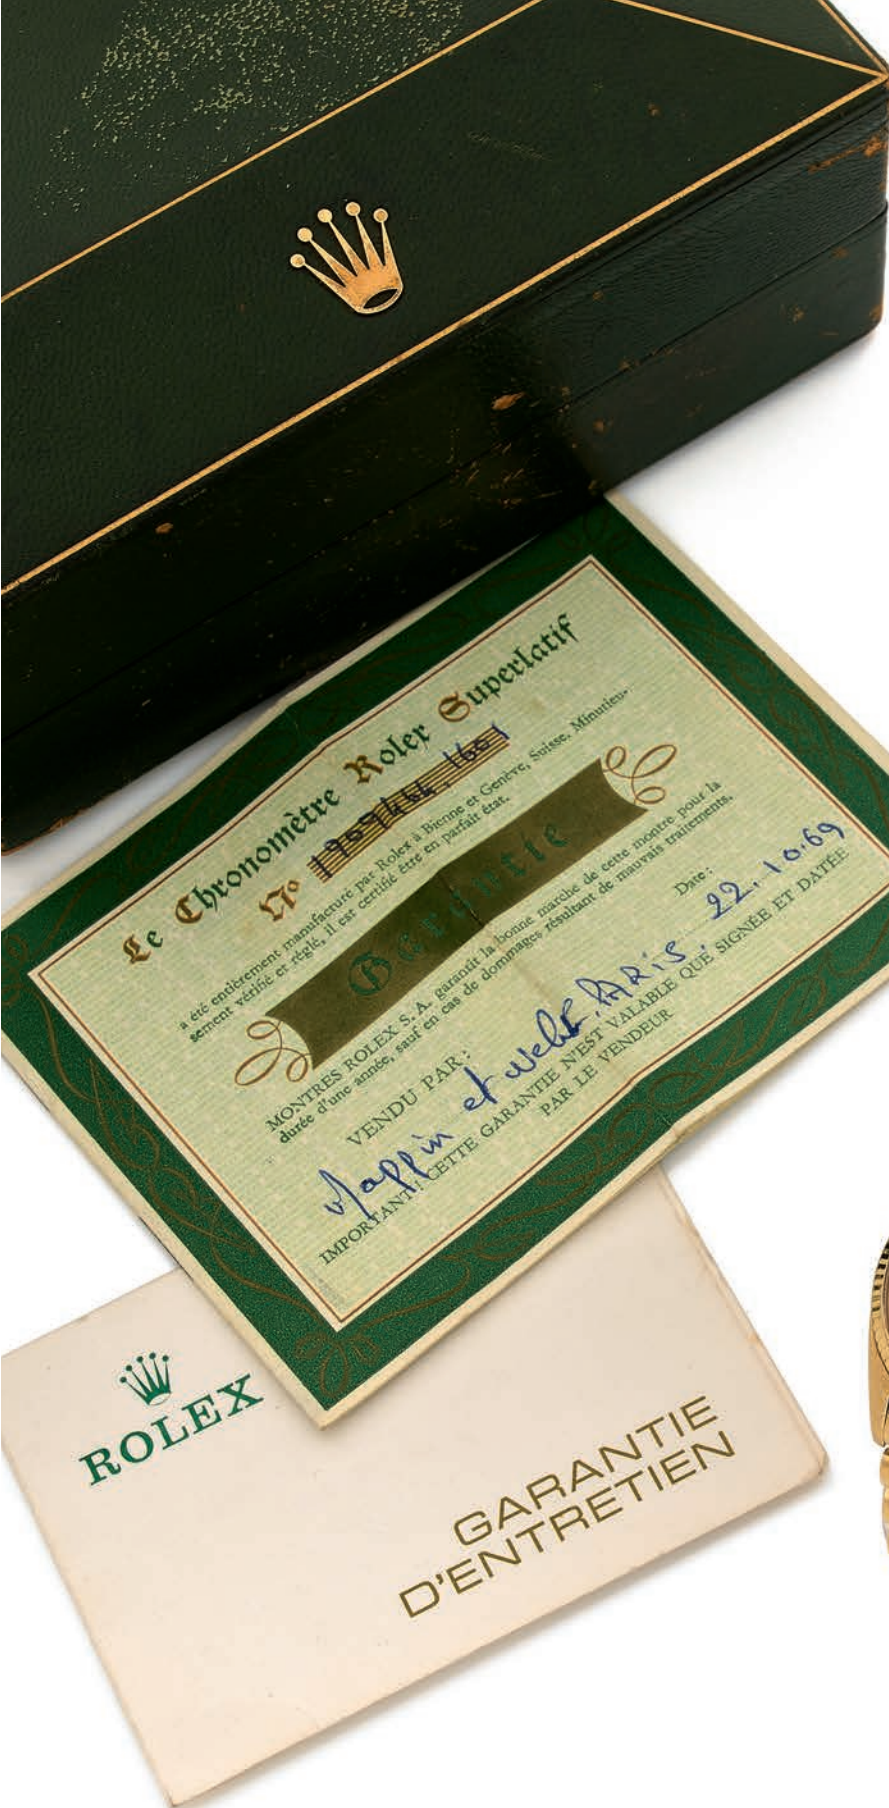 Le Chronomètre Rolex Superlatif
N° 1909444. 1601
a été entièrement manufacturé par Rolex à Bienne et Genève, Suisse. Minutieu-
sement vérifié et réglé, il est certifié être en parfait état.
Garantie
MONTRES ROLEX S. A. garantit la bonne marche de cette montre pour la
durée d'une année, sauf en cas de dommages résultant de mauvais traitements.
VENDU PAR:
Date:
Mappin et Webb, PARIS. 22.10.69
IMPORTANT! CETTE GARANTIE N'EST VALABLE QUE SIGNÉE ET DATÉE
PAR LE VENDEUR
ROLEX
GARANTIE
D'ENTRETIEN